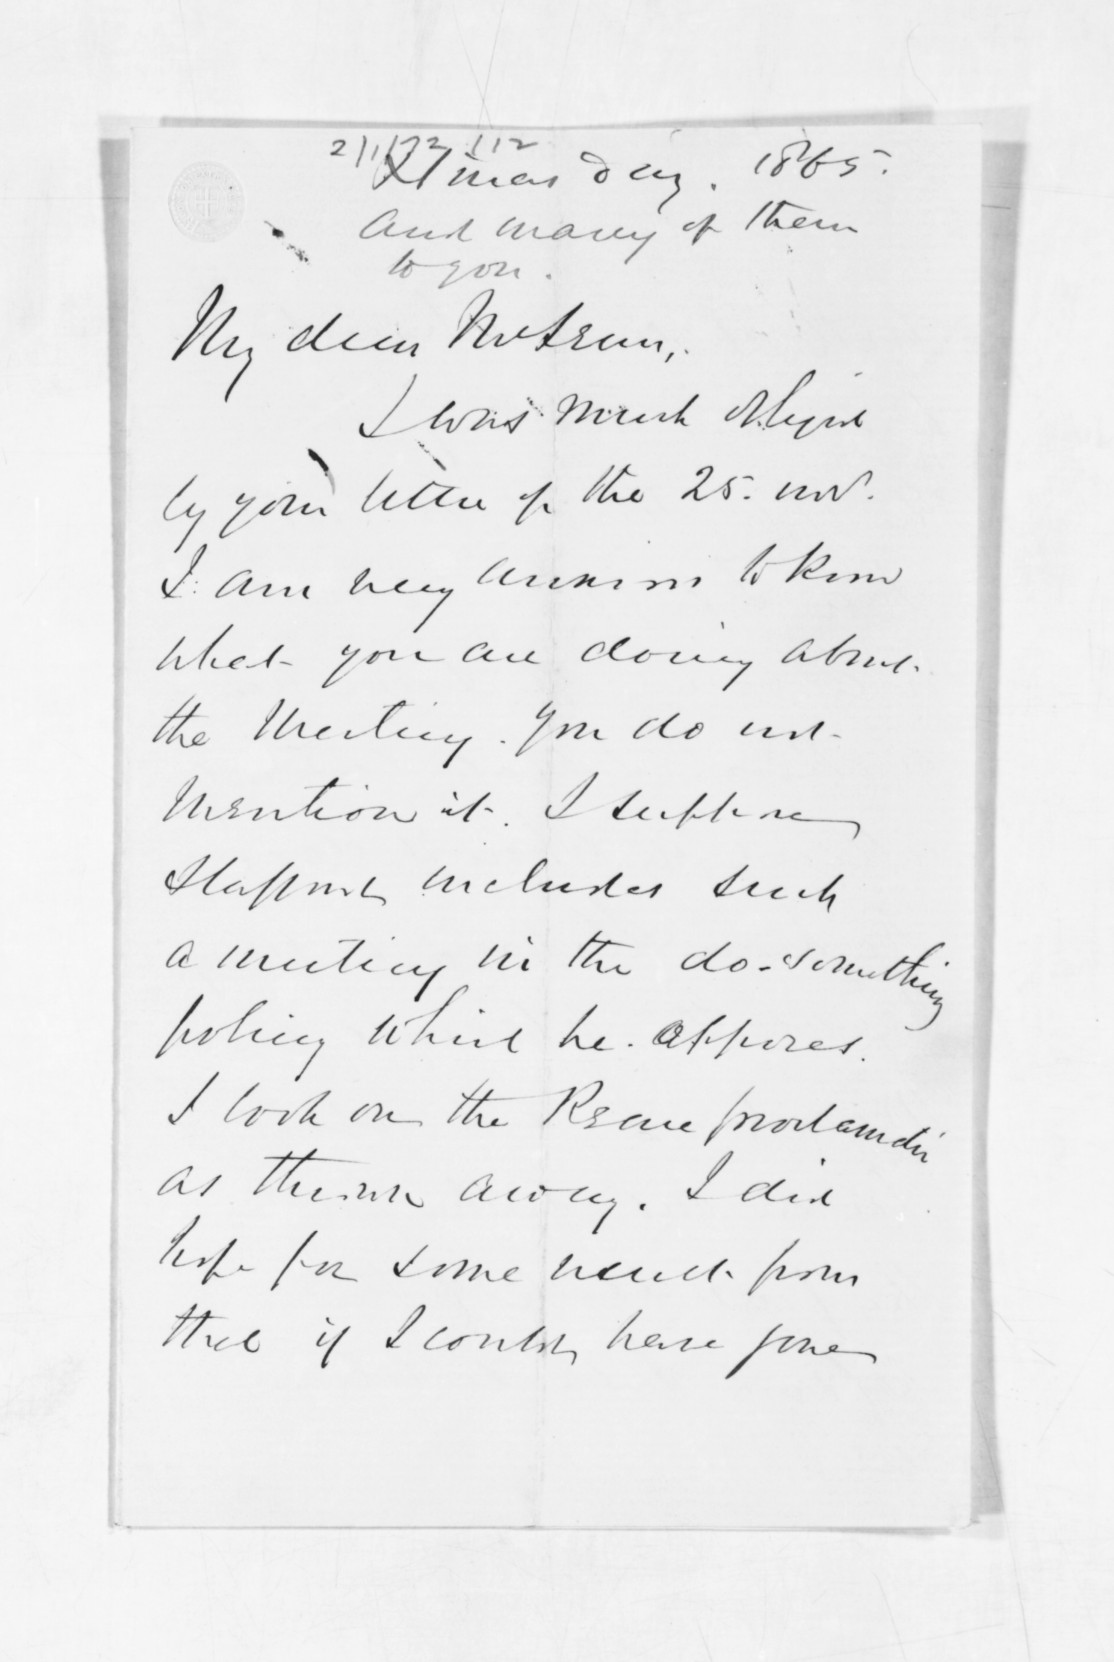 Xtmas day. 1865.
and many of them
to you.
My dear McLean,
I was much obliged
by your letter of the 25. nov.
I am very anxious to know
what you are doing about
the Meeting. You do not
mention it. I suppose
Stafford includes such
a meeting in the do-something
policy which he opposes.
I look on the Peace proclamation
as thrown away. I did
hope for some result from
that if I could have gone